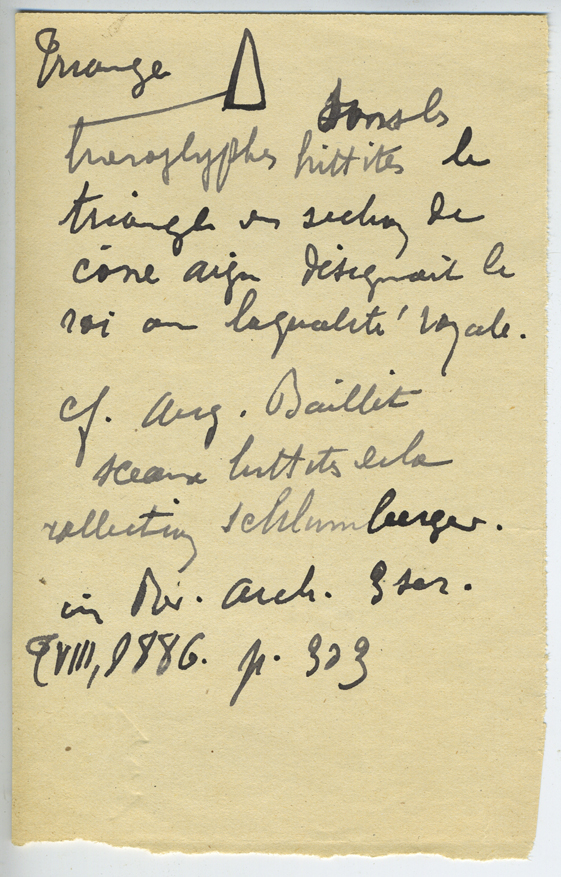 Triangle
dans les
hieroglyphes hittites le
triangle en section de
cône aigu désignait le
roi ou la qualité royale.
cf. Aug. Baillet
sceaux hittites de la
collection Schlumberger.
in Rev. arch. 3 ser.
T VIII, 1886. p. 323